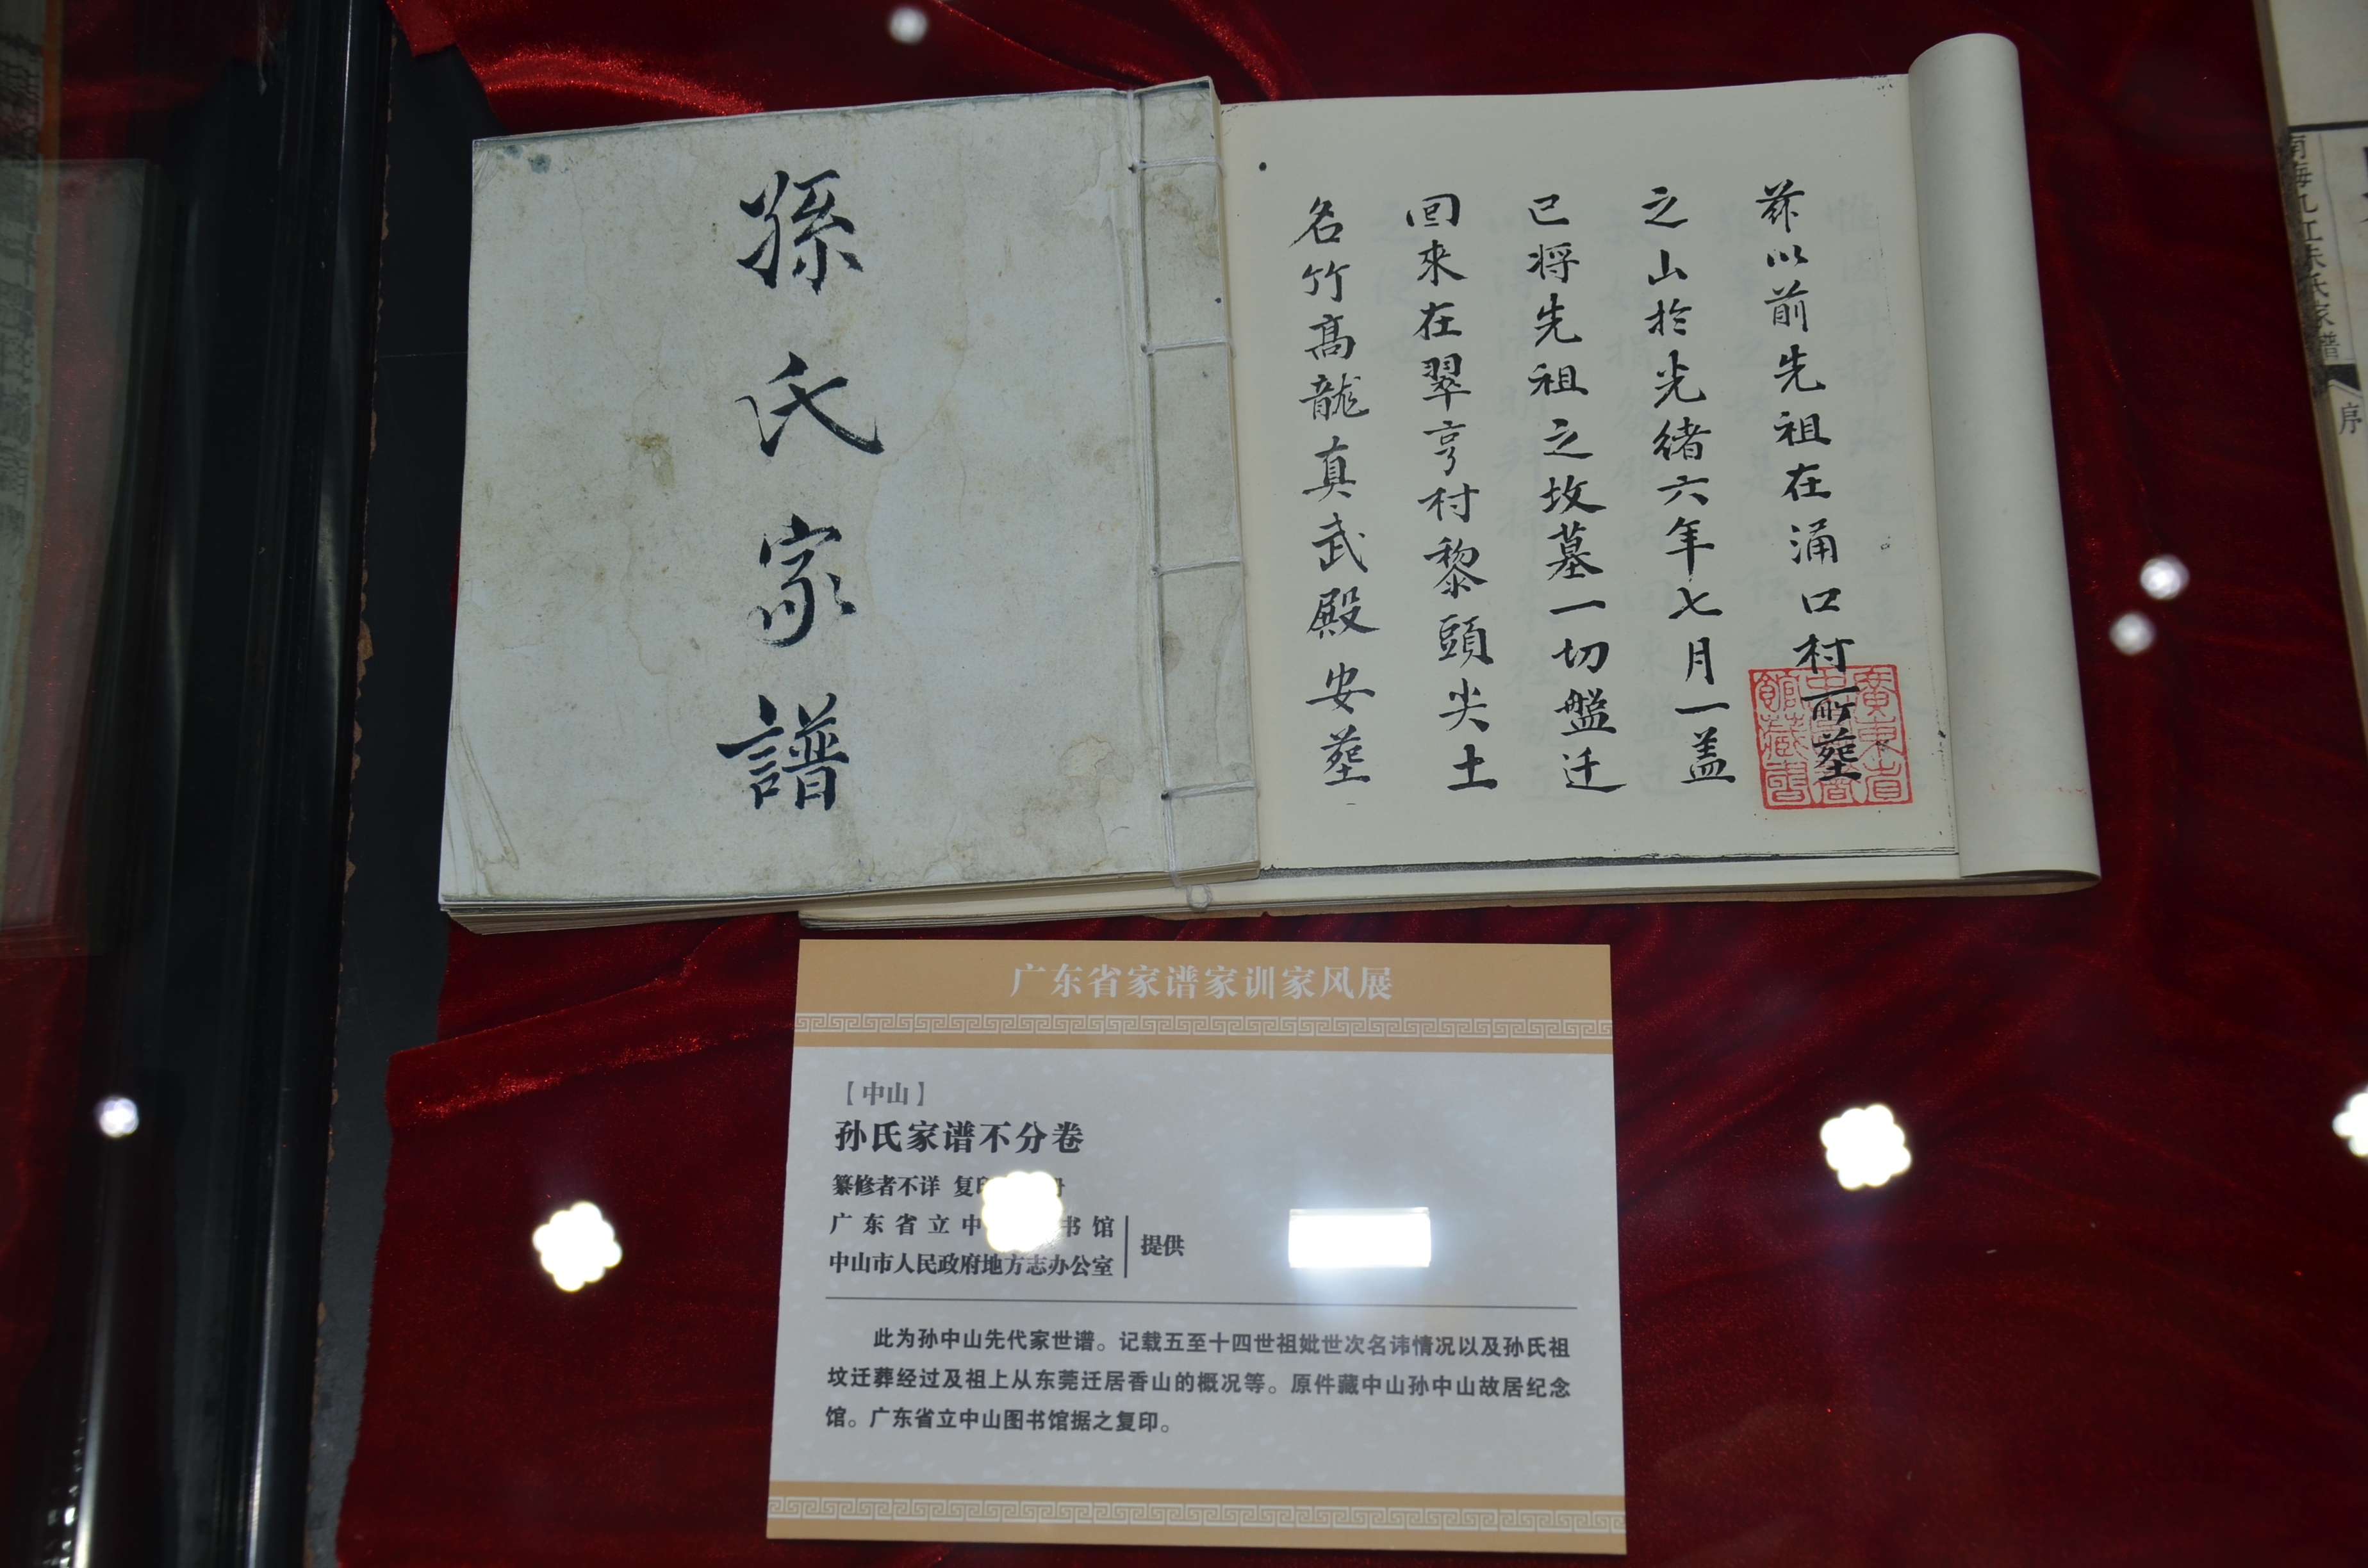 孫氏家譜
茲以前先祖在涌口村所塟
之山於光绪六年七月一盖
已将先祖之坟墓一切盤迁
回來在翠亨村黎頭尖土
名竹高龍真武殿安塟
廣東省
中山圖書
館藏書
广东省家谱家训家风展
【中山】
孙氏家谱不分卷
纂修者不详 复印
广东省立中 书馆
中山市人民政府地方志办公室
提供
此为孙中山先代家世谱。记载五至十四世祖妣世次名讳情况以及孙氏祖
坟迁葬经过及祖上从东莞迁居香山的概况等。原件藏中山孙中山故居纪念
馆。广东省立中山图书馆据之复印。
南海九江朱氏家譜
序